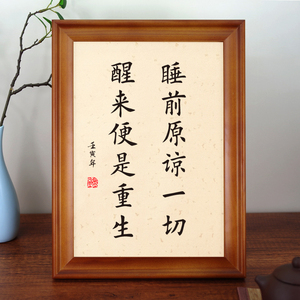 睡前原谅一切
醒来便是重生
壬寅年